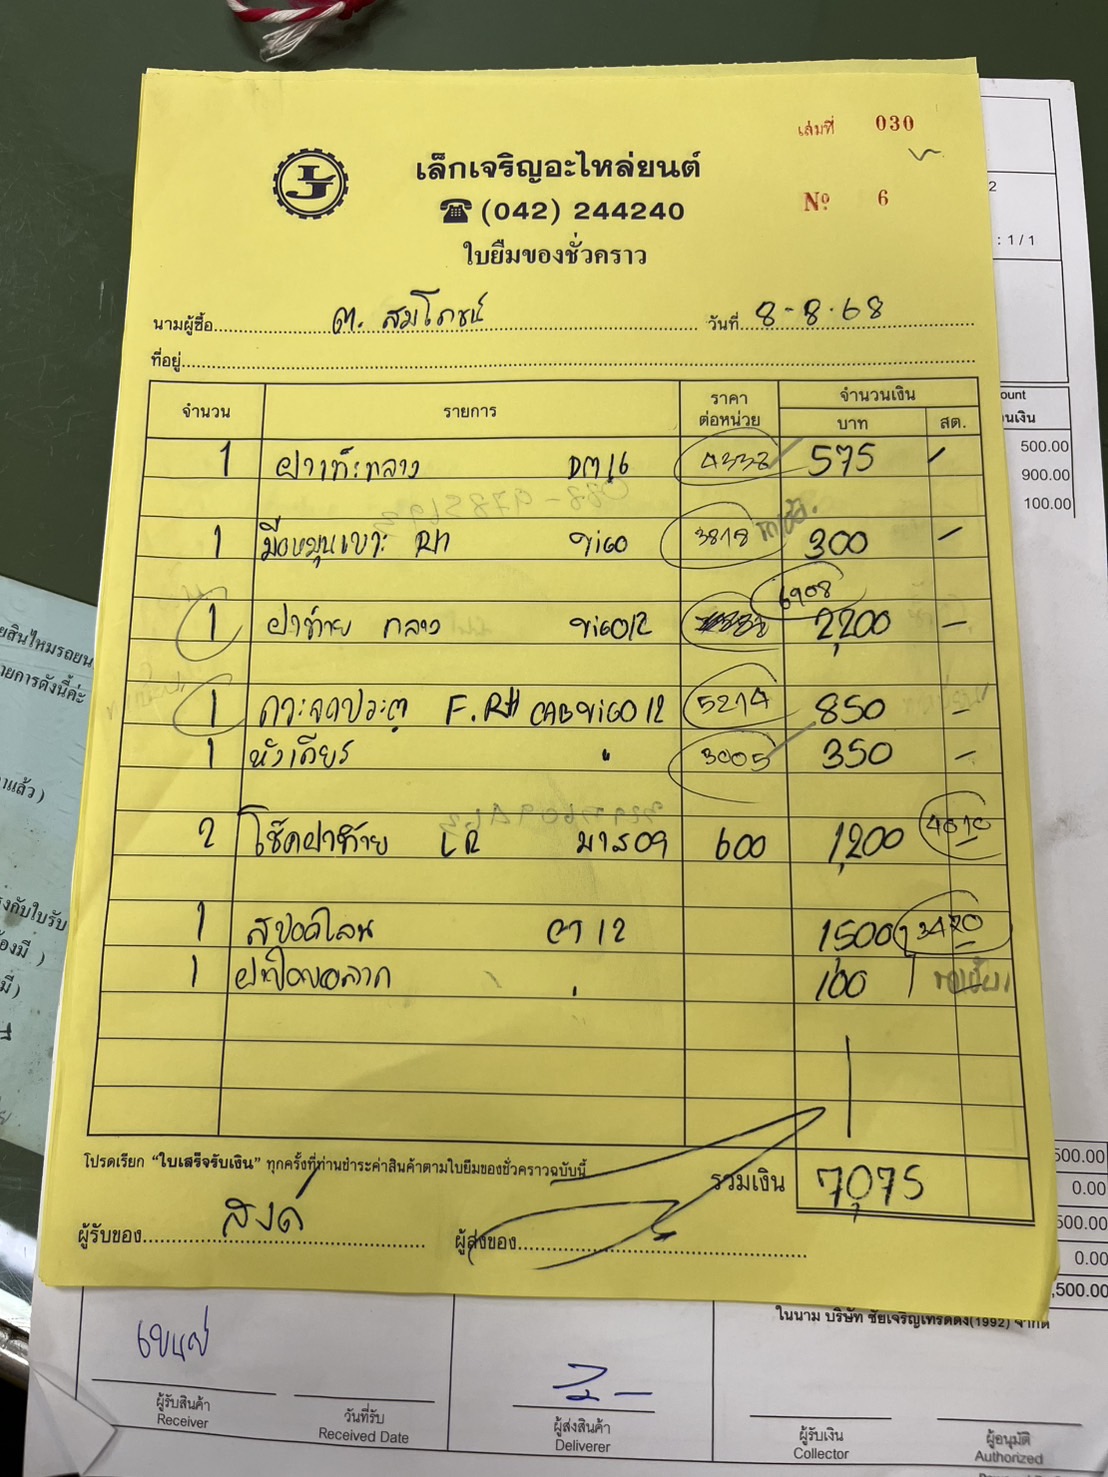 เล่มที่ 030
เล็กเจริญอะไหล่ยนต์
LJ
(042) 244240
Nº 6
ใบยืมของชั่วคราว
นามผู้ซื้อ ต. สมโภชน์ วันที่ 8-8-68
ที่อยู่
จำนวน รายการ ราคาต่อหน่วย จำนวนเงิน
บาท สต.
1 ฝาท้ายกลาง DM16 4338 575 -
1 มือหมุนเบาะ RH vigo 3818 300 -
6908
1 ฝาท้าย กลาง vigo12 2,200 -
1 กระจกประตู F.RH CAB vigo 12 5214 850 -
1 หัวเกียร์ " 3005 350 -
2 โช๊คฝาท้าย LR มาส09 600 1,200 4610
1 สปอตไลน CT 12 1,500 3420
1 ฝาปิดขอลาก 100
รวมเงิน 7,075
โปรดเรียก "ใบเสร็จรับเงิน" ทุกครั้งที่ท่านชำระค่าสินค้าตามใบยืมของชั่วคราวฉบับนี้
ผู้รับของ ผู้ส่งของ
: 1 / 1
500.00
900.00
100.00
0.00
500.00
0.00
,500.00
ในนาม บริษัท ชัยเจริญเทรดดิ้ง(1992) จำกัด
ผู้รับสินค้า
Receiver
วันที่รับ
Received Date
ผู้ส่งสินค้า
Deliverer
ผู้รับเงิน
Collector
ผู้อนุมัติ
Authorized